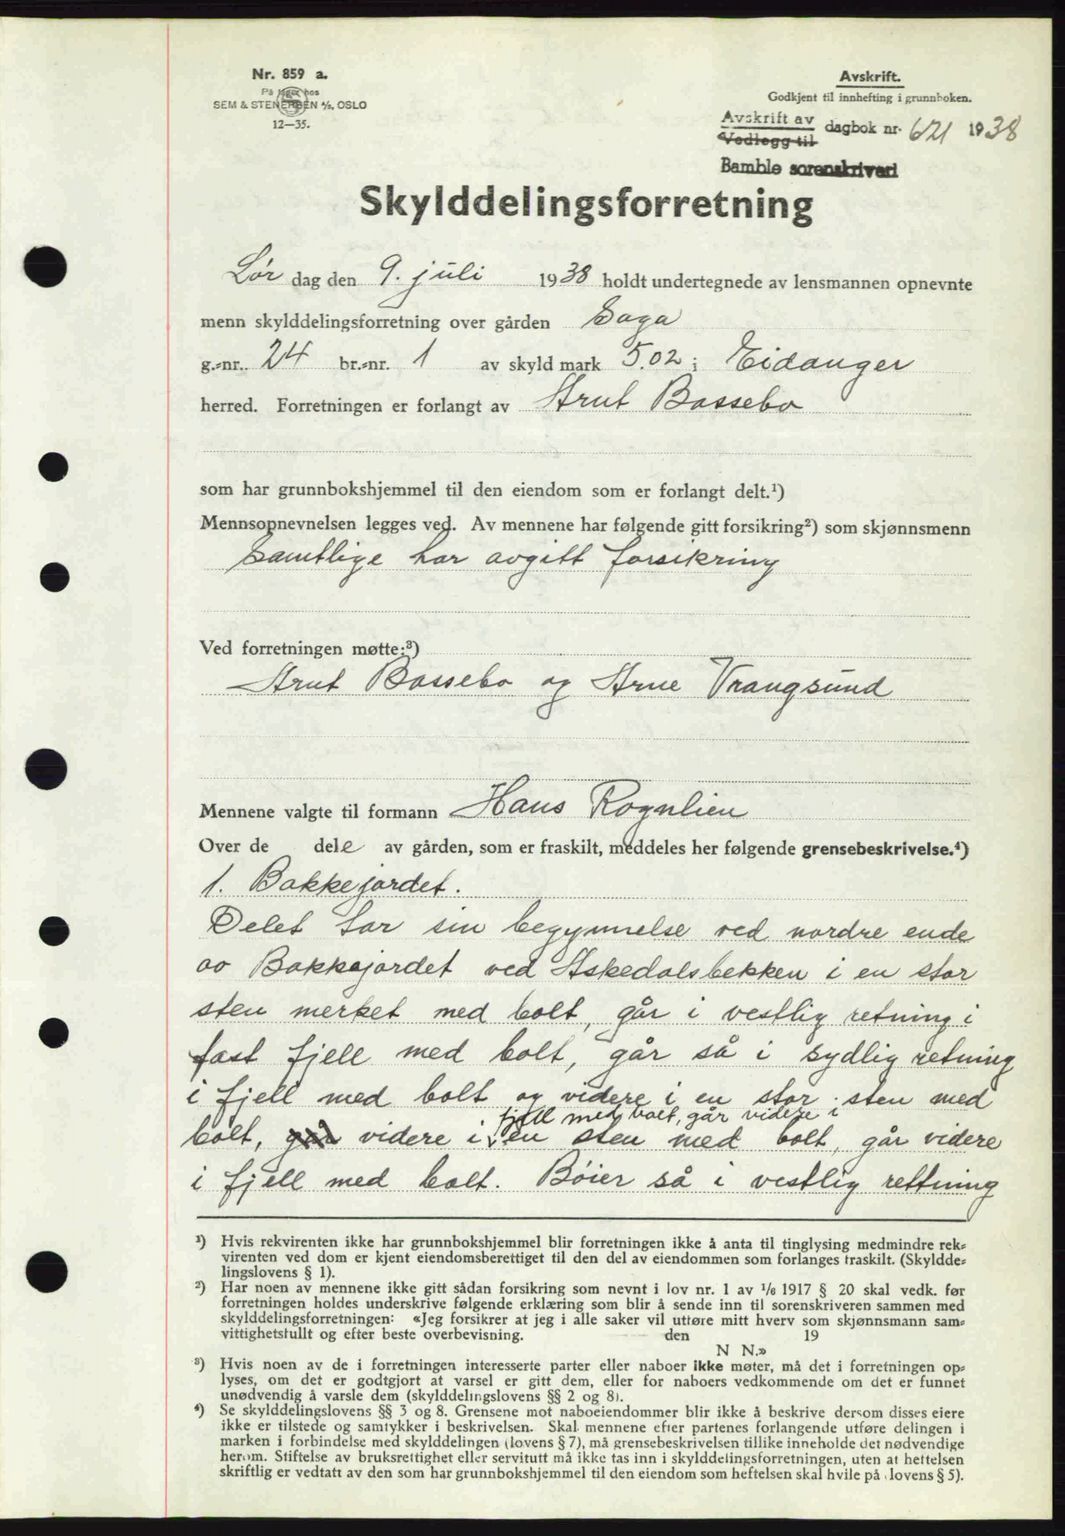 Nr. 859 a.
På lager hos
SEM & STENERSEN A/S, OSLO
12—35.
Avskrift.
Godkjent til innhefting i grunnboken.
Avskrift av
Vedlegg til
dagbok nr. 621 1938
Bamble sorenskriveri
Skylddelingsforretning
Lør dag den 9. juli 1938 holdt undertegnede av lensmannen opnevnte
menn skylddelingsforretning over gården Saga
g.-nr. 24 br.-nr. 1 av skyld mark 5.02 i Eidanger
herred. Forretningen er forlangt av Arut Bassebo
som har grunnbokshjemmel til den eiendom som er forlangt delt.¹)
Mennsopnevnelsen legges ved. Av mennene har følgende gitt forsikring²) som skjønnsmenn
Samtlige har avgitt forsikring
Ved forretningen møtte:³)
Arut Bassebo og Arne Vrangsund
Mennene valgte til formann Hans Rognlien
Over de dele av gården, som er fraskilt, meddeles her følgende grensebeskrivelse.⁴)
1. Bakkejordet.
Delet tar sin begynnelse ved nordre ende
av Bakkejordet ved Askedalsbekken i en stor
sten merket med bolt, går i vestlig retning i
fast fjell med bolt, går så i sydlig retning
i fjell med bolt og videre i en stor sten med
fjell med bolt, går videre i
bolt, går videre i en sten med bolt, går videre
i fjell med bolt. Bøier så i vestlig rettning
¹) Hvis rekvirenten ikke har grunnbokshjemmel blir forretningen ikke å anta til tinglysing medmindre rek-
virenten ved dom er kjent eiendomsberettiget til den del av eiendommen som forlanges fraskilt. (Skyldde-
lingslovens § 1).
²) Har noen av mennene ikke gitt sådan forsikring som nevnt i lov nr. 1 av 1/6 1917 § 20 skal vedk. før
forretningen holdes underskrive følgende erklæring som blir å sende inn til sorenskriveren sammen med
skylddelingsforretningen: «Jeg forsikrer at jeg i alle saker vil utføre mitt hverv som skjønnsmann sam-
vittighetsfullt og efter beste overbevisning. den 19
N N.»
³) Hvis noen av de i forretningen interesserte parter eller naboer ikke møter, må det i forretningen op-
lyses, om det er godtgjort at varsel er gitt dem, eller for naboers vedkommende om det er funnet
unødvendig å varsle dem (skylddelingslovens §§ 2 og 8).
⁴) Se skylddelingslovens §§ 3 og 8. Grensene mot naboeiendommer blir ikke å beskrive dersom disses eiere
ikke er tilstede og samtykker i beskrivelsen. Skal mennene efter partenes forlangende utføre delingen i
marken i forbindelse med skylddelingen (lovens § 7), må grensebeskrivelsen tillike inneholde det nødvendige
herom. Stiftelse av bruksrettighet eller servitutt må ikke tas inn i skylddelingsforretningen, uten at heftelsen
skriftlig er vedtatt av den som har grunnbokshjemmel til den eiendom som heftelsen skal hvile på (lovens § 5).